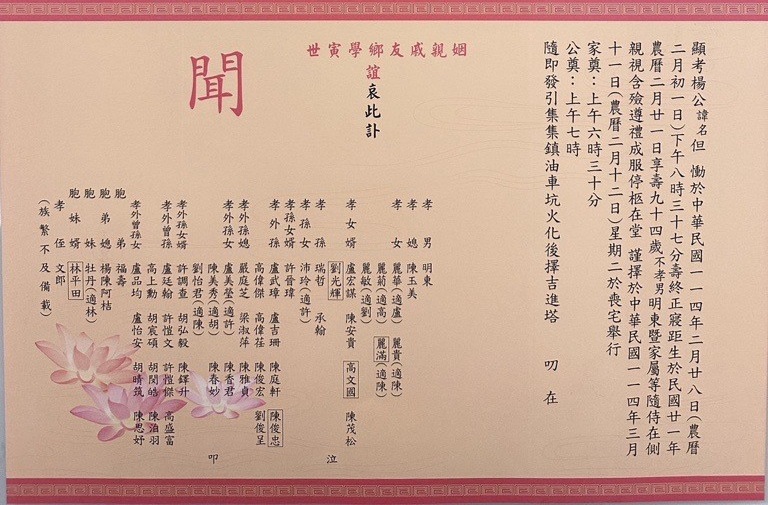 顯考楊公諱名但 慟於中華民國一一四年二月廿八日(農曆
二月初一日)下午八時三十七分壽終正寢距生於民國廿一年
農曆二月廿一日享壽九十四歲不孝男明東暨家屬等隨侍在側
親視含殮遵禮成服停柩在堂 謹擇於中華民國一一四年三月
十一日(農曆二月十二日)星期二於喪宅舉行
家奠:上午六時三十分
公奠:上午七時
隨即發引集集鎮油車坑火化後擇吉進塔 叨 在
姻親戚友鄉學寅世
誼哀此訃
聞
孝男 明東
孝媳 陳玉美
孝女 麗華(適盧) 麗貴(適陳)
麗菊(適高) 麗滿(適陳)
麗敏(適劉)
孝女婿 盧宏謀 陳安貴 高文國 陳茂松
劉光輝
孝孫 瑞哲 承翰
孝孫女 沛玲(適許)
孝孫女婿 許晉瑋
孝外孫 盧武璋 盧吉珊 陳庭軒 陳俊忠
高偉傑 高偉荏 陳俊宏 劉俊呈
孝外孫媳 嚴庭芝 梁淑萍 陳雅貞
孝外孫女 盧美瑩(適許) 陳香君
陳美秀(適胡) 陳春妙
劉怡君(適陳)
孝外孫女婿 許調查 胡弘毅 陳鐸升
孝外曾孫 盧廷翰 許愷文 許愷傑 高盛富
高上勳 胡宸碩 胡閔皓 陳泊羽
孝外曾孫女 盧品均 盧怡安 胡晴筑 陳思妤
胞弟 福壽
胞弟媳 楊陳阿桔
胞妹 牡丹(適林)
胞妹婿 林平田
孝侄 文郎
(族繁不及備載)
泣
叩